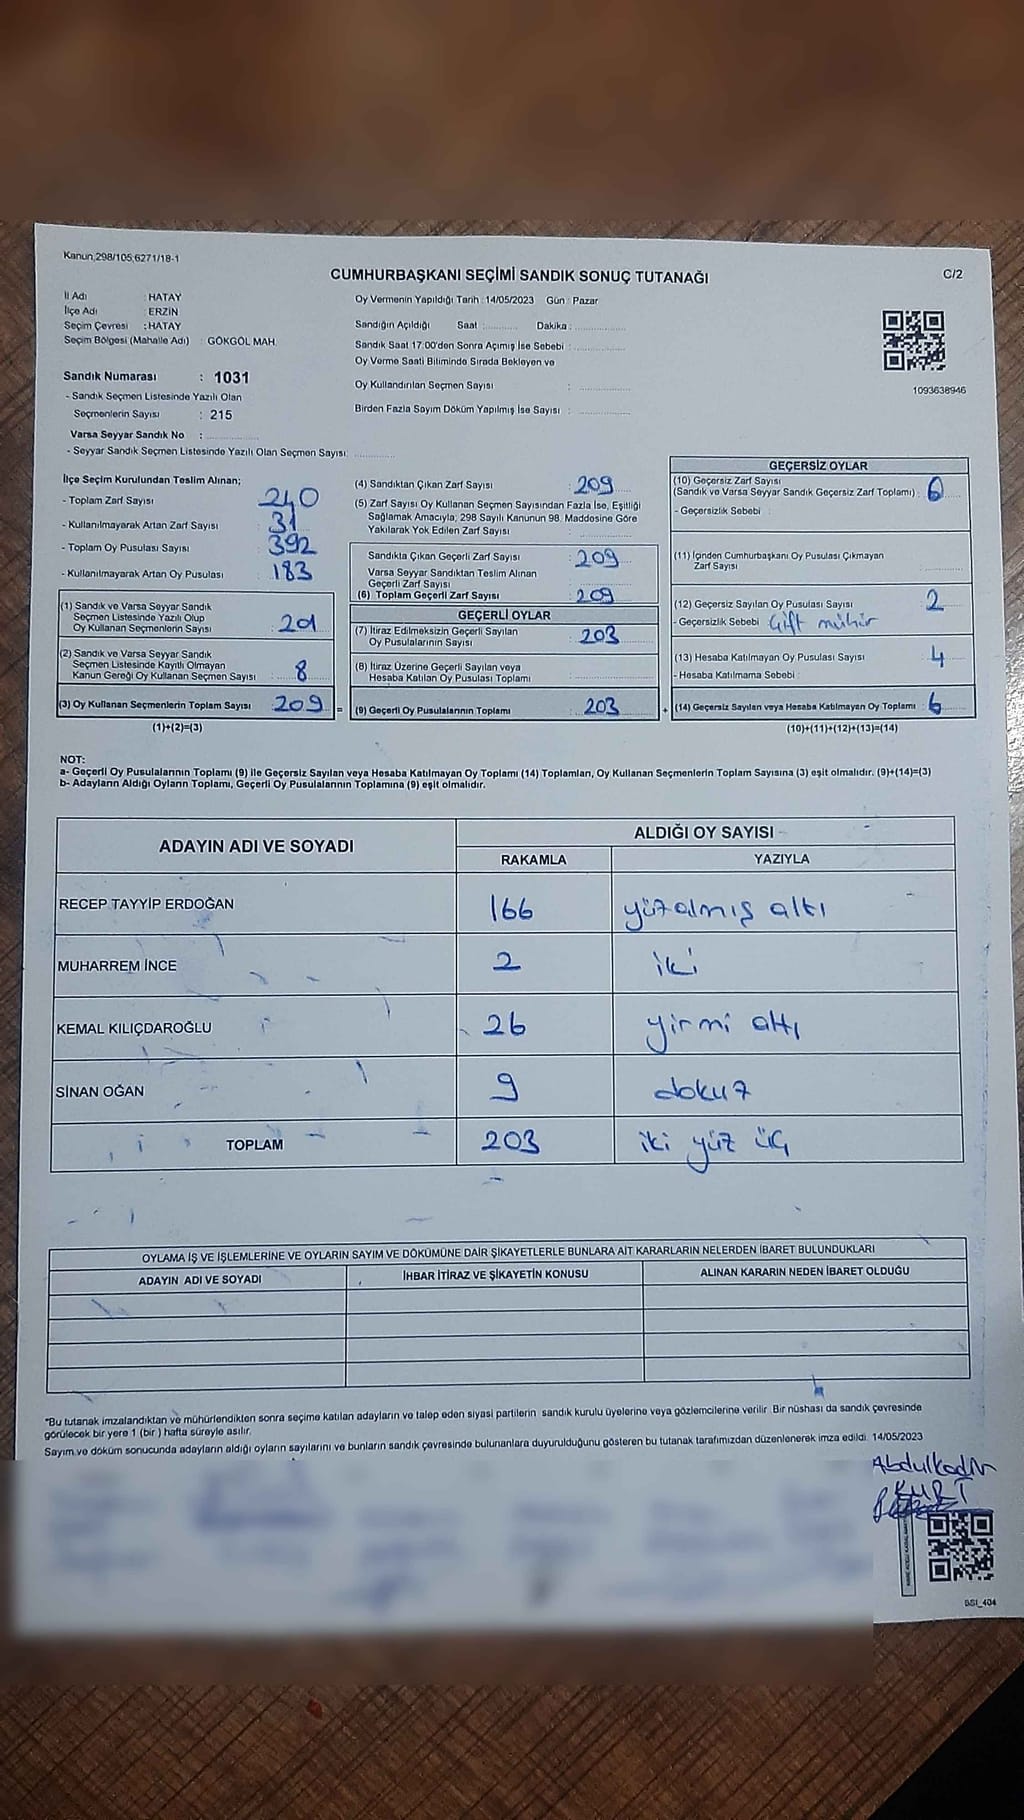 Kanun,298/105;6271/18-1
CUMHURBAŞKANI SEÇİMİ SANDIK SONUÇ TUTANAĞI
C/2
İl Adı : HATAY
İlçe Adı : ERZİN
Seçim Çevresi : HATAY
Seçim Bölgesi (Mahalle Adı) : GÖKGÖL MAH.
Oy Vermenin Yapıldığı Tarih :14/05/2023 Gün : Pazar
Sandığın Açıldığı Saat : Dakika :
Sandık Saat 17:00'den Sonra Açımış İse Sebebi :
Oy Verme Saati Bitiminde Sırada Bekleyen ve
Oy Kullandırılan Seçmen Sayısı :
Birden Fazla Sayım Döküm Yapılmış İse Sayısı :
1093638946
Sandık Numarası : 1031
- Sandık Seçmen Listesinde Yazılı Olan
Seçmenlerin Sayısı : 215
Varsa Seyyar Sandık No :
- Seyyar Sandık Seçmen Listesinde Yazılı Olan Seçmen Sayısı:
İlçe Seçim Kurulundan Teslim Alınan;
- Toplam Zarf Sayısı : 240
- Kullanılmayarak Artan Zarf Sayısı : 31
- Toplam Oy Pusulası Sayısı : 392
- Kullanılmayarak Artan Oy Pusulası : 183
(1) Sandık ve Varsa Seyyar Sandık
Seçmen Listesinde Yazılı Olup
Oy Kullanan Seçmenlerin Sayısı : 201
(2) Sandık ve Varsa Seyyar Sandık
Seçmen Listesinde Kayıtlı Olmayan
Kanun Gereği Oy Kullanan Seçmen Sayısı : 8
(3) Oy Kullanan Seçmenlerin Toplam Sayısı : 209 =
(1)+(2)=(3)
(4) Sandıktan Çıkan Zarf Sayısı : 209
(5) Zarf Sayısı Oy Kullanan Seçmen Sayısından Fazla İse, Eşitliği
Sağlamak Amacıyla; 298 Sayılı Kanunun 98. Maddesine Göre
Yakılarak Yok Edilen Zarf Sayısı :
Sandıkta Çıkan Geçerli Zarf Sayısı : 209
Varsa Seyyar Sandıktan Teslim Alınan
Geçerli Zarf Sayısı :
(6) Toplam Geçerli Zarf Sayısı : 209
GEÇERLİ OYLAR
(7) İtiraz Edilmeksizin Geçerli Sayılan
Oy Pusulalarının Sayısı : 203
(8) İtiraz Üzerine Geçerli Sayılan veya
Hesaba Katılan Oy Pusulası Toplamı :
(9) Geçerli Oy Pusulalarının Toplamı : 203 +
GEÇERSİZ OYLAR
(10) Geçersiz Zarf Sayısı
(Sandık ve Varsa Seyyar Sandık Geçersiz Zarf Toplamı) :
- Geçersizlik Sebebi :
(11) İçinden Cumhurbaşkanı Oy Pusulası Çıkmayan
Zarf Sayısı
(12) Geçersiz Sayılan Oy Pusulası Sayısı : 2
- Geçersizlik Sebebi Çift mühür
(13) Hesaba Katılmayan Oy Pusulası Sayısı : 4
- Hesaba Katılmama Sebebi :
(14) Geçersiz Sayılan veya Hesaba Katılmayan Oy Toplamı : 6
(10)+(11)+(12)+(13)=(14)
NOT:
a- Geçerli Oy Pusulalarının Toplamı (9) ile Geçersiz Sayılan veya Hesaba Katılmayan Oy Toplamı (14) Toplamları, Oy Kullanan Seçmenlerin Toplam Sayısına (3) eşit olmalıdır. (9)+(14)=(3)
b- Adayların Aldığı Oyların Toplamı, Geçerli Oy Pusulalarının Toplamına (9) eşit olmalıdır.
ADAYIN ADI VE SOYADI
ALDIĞI OY SAYISI
RAKAMLA YAZIYLA
RECEP TAYYİP ERDOĞAN 166 yüzalmış altı
MUHARREM İNCE 2 iki
KEMAL KILIÇDAROĞLU 26 yirmi altı
SİNAN OĞAN 9 dokuz
TOPLAM 203 iki yüz üç
OYLAMA İŞ VE İŞLEMLERİNE VE OYLARIN SAYIM VE DÖKÜMÜNE DAİR ŞİKAYETLERLE BUNLARA AİT KARARLARIN NELERDEN İBARET BULUNDUKLARI
ADAYIN ADI VE SOYADI İHBAR İTİRAZ VE ŞİKAYETİN KONUSU ALINAN KARARIN NEDEN İBARET OLDUĞU
*Bu tutanak imzalandıktan ve mühürlendikten sonra seçime katılan adayların ve talep eden siyasi partilerin sandık kurulu üyelerine veya gözlemcilerine verilir. Bir nüshası da sandık çevresinde
görülecek bir yere 1 (bir ) hafta süreyle asılır.
Sayım ve döküm sonucunda adayların aldığı oyların sayılarını ve bunların sandık çevresinde bulunanlara duyurulduğunu gösteren bu tutanak tarafımızdan düzenlenerek imza edildi. 14/05/2023
Abdulkadir
KURT
BSI_404